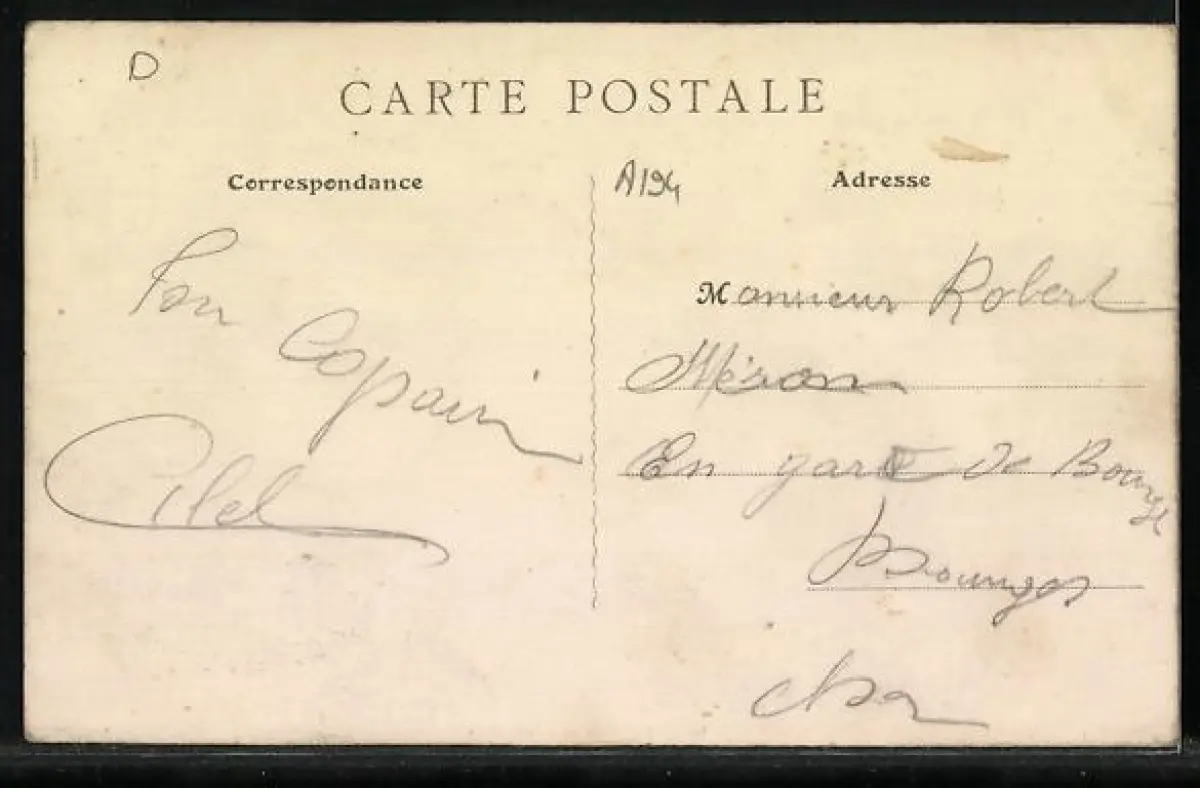 D
CARTE POSTALE
Correspondance
Ton
Copain
A194
Adresse
Monsieur Robert
Méron
En gare de Bourges
Bourges
Cher